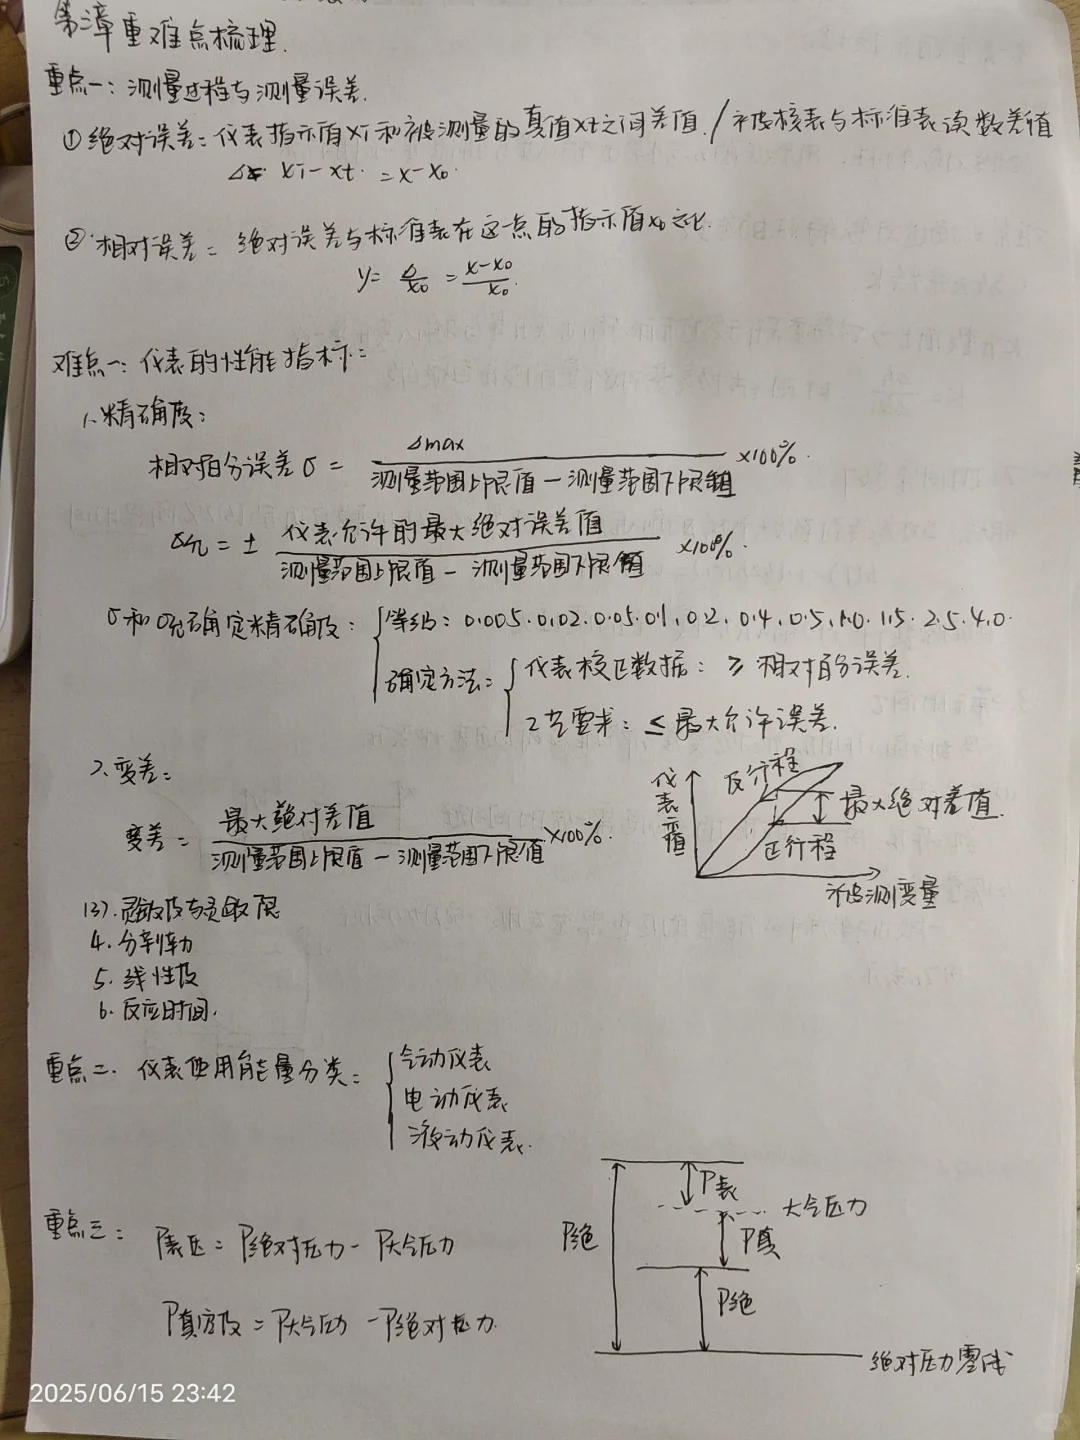 第三章重难点梳理.
重点一：测量过程与测量误差.
①绝对误差=仪表指示值xi和被测量的真值xt之间差值./被校核表与标准表读数差值
Δ= xi-xt. =x-x₀.
②相对误差= 绝对误差与标准表在这一点的指示值x₀之比.
y= Δ/x₀ = x-x₀/x₀.
难点一：仪表的性能指标：
1.精确度：
相对百分误差δ = Δmax/测量范围上限值-测量范围下限值 ×100%.
δ允 = ± 仪表允许的最大绝对误差值/测量范围上限值-测量范围下限值 ×100%.
δ和δ允确定精确度： 等级：0.005. 0.02. 0.05. 0.1, 0.2, 0.4, 0.5, 1.0. 1.5. 2.5. 4.0.
确定方法： 仪表校正数据：≥ 相对百分误差.
工艺要求：≤ 最大允许误差.
2.变差：
变差 = 最大绝对差值/测量范围上限值-测量范围下限值 ×100%.
仪表示值
反行程
最大绝对差值.
正行程
被测变量
(3). 灵敏度与灵敏限
4. 分辨力
5. 线性度
6. 反应时间.
重点二. 仪表使用能量分类： 气动仪表
电动仪表
液动仪表.
重点三： P表压 = P绝对压力 - P大气压力
P真空度 = P大气压力 - P绝对压力.
P表
大气压力
P绝
P真
P绝
绝对压力零线
2025/06/15 23:42